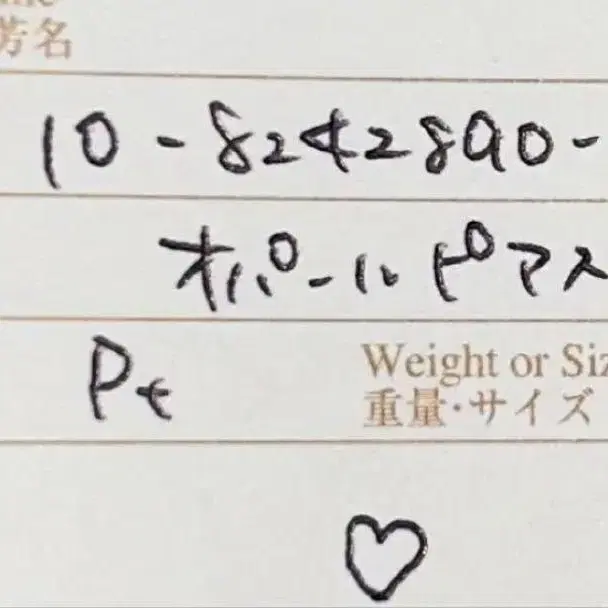 芳名
10-8242890-
オパールピアス
Pt
Weight or Siz
重量・サイズ
♡